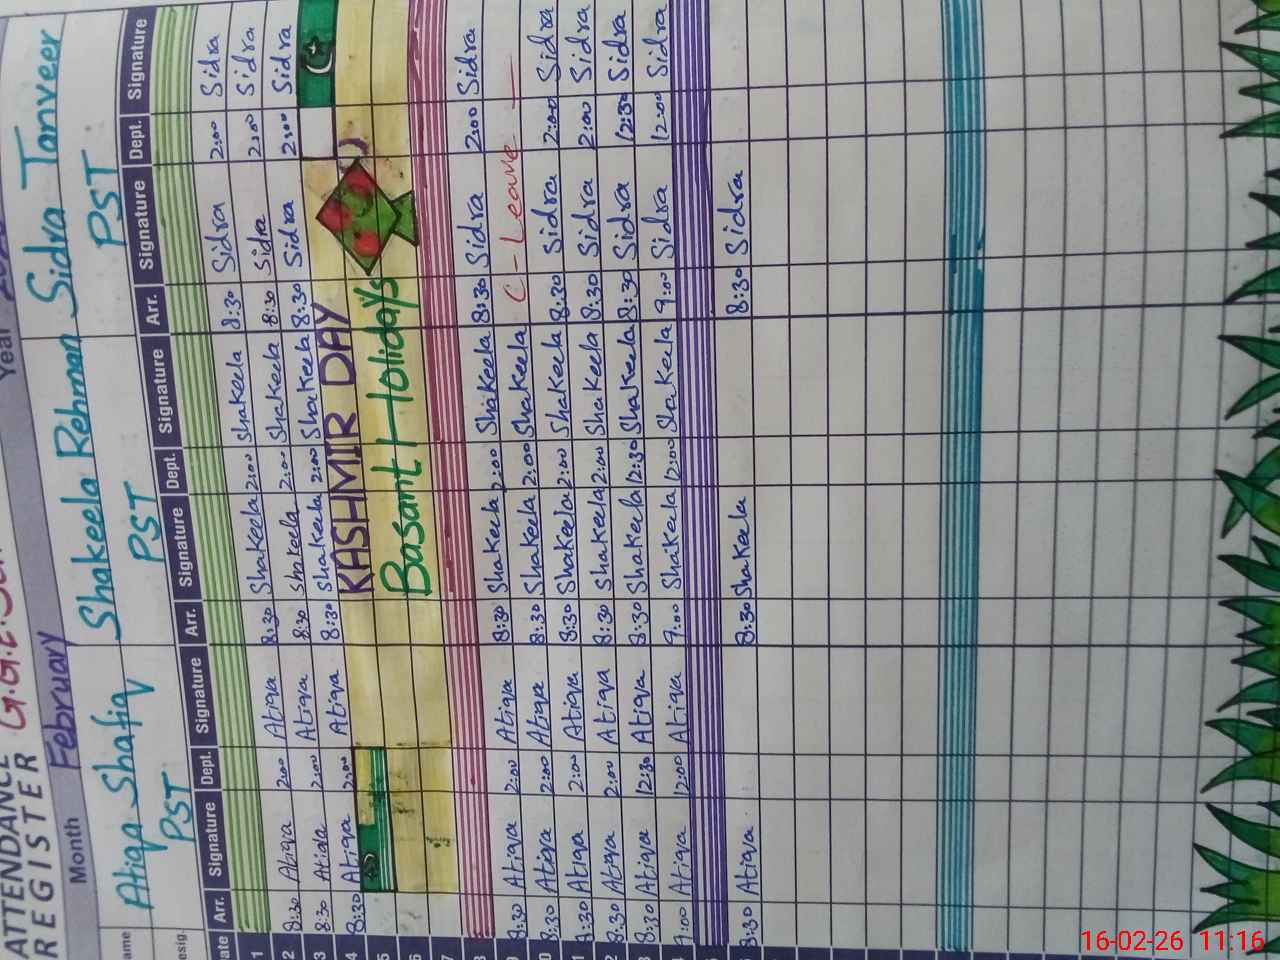 ATTENDANCE REGISTER
G.G.E.S
Month February Year
Name Atiqa Shafiq Shakeela Rehman Sidra Tanveer
Desig. PST PST PST
Date Arr. Signature Dept. Signature Arr. Signature Dept. Signature Arr. Signature Dept. Signature
1
2 8:30 Atiqa 2:00 Atiqa 8:30 Shakeela 2:00 Shakeela 8:30 Sidra 2:00 Sidra
3 8:30 Atiqa 2:00 Atiqa 8:30 Shakeela 2:00 Shakeela 8:30 Sidra 2:00 Sidra
4 8:30 Atiqa 2:00 Atiqa 8:30 Shakeela 2:00 Shakeela 8:30 Sidra 2:00 Sidra
5 KASHMIR DAY
6 Basant Holidays
7
8
9 8:30 Atiqa 2:00 Atiqa 8:30 Shakeela 2:00 Shakeela 8:30 Sidra 2:00 Sidra
10 8:30 Atiqa 2:00 Atiqa 8:30 Shakeela 2:00 Shakeela C - Leave
11 8:30 Atiqa 2:00 Atiqa 8:30 Shakeela 2:00 Shakeela 8:30 Sidra 2:00 Sidra
12 8:30 Atiqa 2:00 Atiqa 8:30 Shakeela 2:00 Shakeela 8:30 Sidra 2:00 Sidra
13 8:30 Atiqa 12:30 Atiqa 8:30 Shakeela 12:30 Shakeela 8:30 Sidra 12:30 Sidra
14 9:00 Atiqa 12:00 Atiqa 9:00 Shakeela 12:00 Shakeela 9:00 Sidra 12:00 Sidra
8:30 Atiqa 8:30 Shakeela 8:30 Sidra
16-02-26 11:16